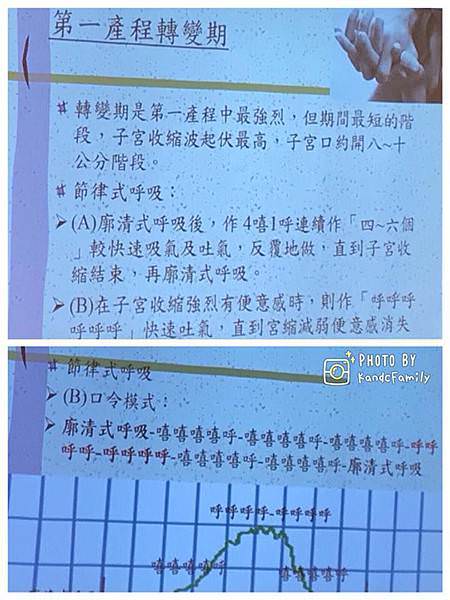 第一產程轉變期
轉變期是第一產程中最強烈，但期間最短的階
段，子宮收縮波起伏最高，子宮口約開八~十
公分階段。
節律式呼吸：
(A)廓清式呼吸後，作4嘻1呼連續作「四~六個
」較快速吸氣及吐氣，反覆地做，直到子宮收
縮結束，再廓清式呼吸。
(B)在子宮收縮強烈有便意感時，則作「呼呼呼
呼呼呼」快速吐氣，直到宮縮減弱便意感消失
PHOTO BY
KandcFamily
節律式呼吸
(B)口令模式：
廓清式呼吸-嘻嘻嘻嘻呼-嘻嘻嘻嘻呼-嘻嘻嘻嘻呼-呼呼
呼呼-呼呼呼呼-嘻嘻嘻嘻呼-嘻嘻嘻嘻呼-廓清式呼吸
呼呼呼呼-呼呼呼呼
嘻嘻嘻嘻呼
嘻嘻嘻嘻呼